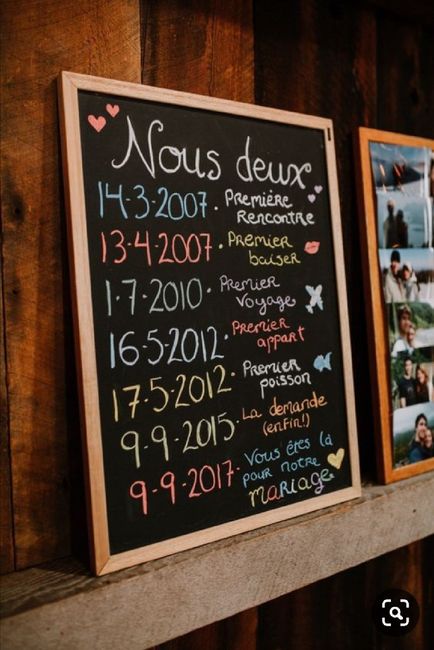 Nous deux
14·3·2007· Première
rencontre
13·4·2007· Premier
baiser
1·7·2010· Premier
voyage
16·5·2012· Premier
appart
17·5·2012· Premier
poisson
9·9·2015· La demande
(enfin!)
9·9·2017· Vous êtes là
pour notre
mariage